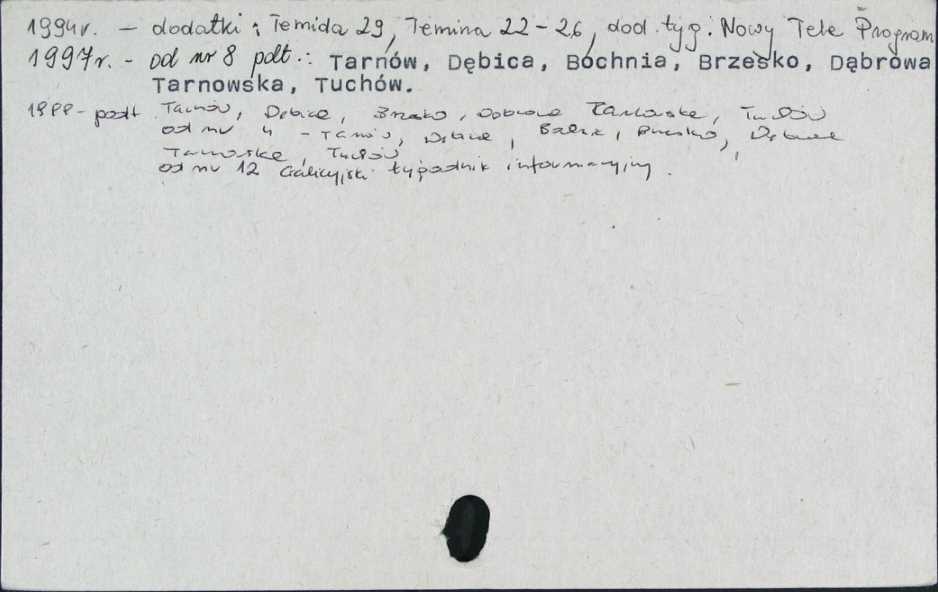 1994r. – dodatki: Temida 29, Temina 22-26, dod. tyg. Nowy Tele Program
1997r. - od nr 8 pdt.: Tarnów, Dębica, Bochnia, Brzesko, Dąbrowa
Tarnowska, Tuchów.
podt. Tarnów, Dębica, Brzesko, Dąbrowa Tarnowska, Tuchów
od nr 4 - Tarnów, Dębica, Brzesko, Dąbrowa
Tarnowska, Tuchów
od nr 12 Galicyjski tygodnik informacyjny.